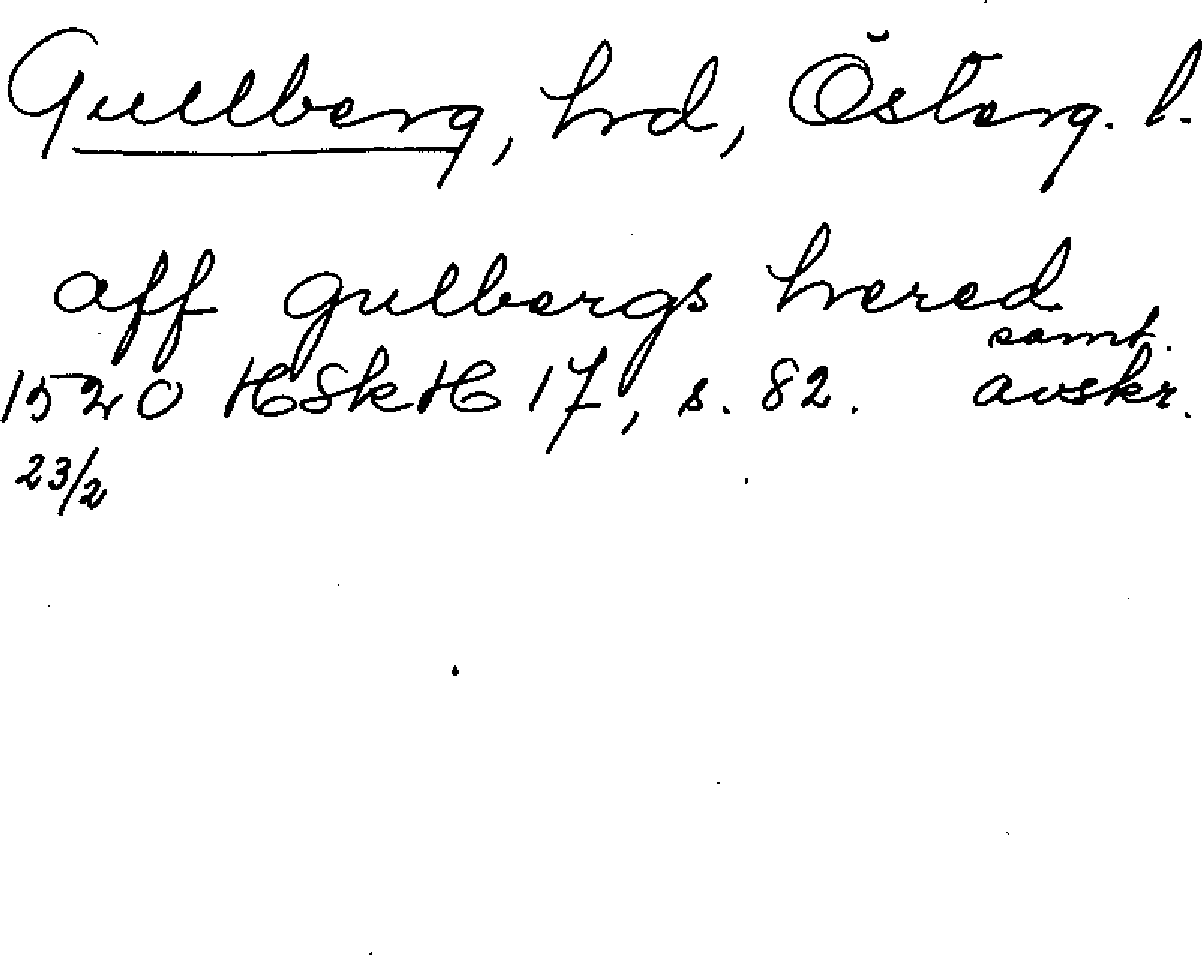 Gullberg, hd, Österg. l.
aff gulbergs hered
samt.
1520 HSkH 17, s. 82. avskr.
23/2